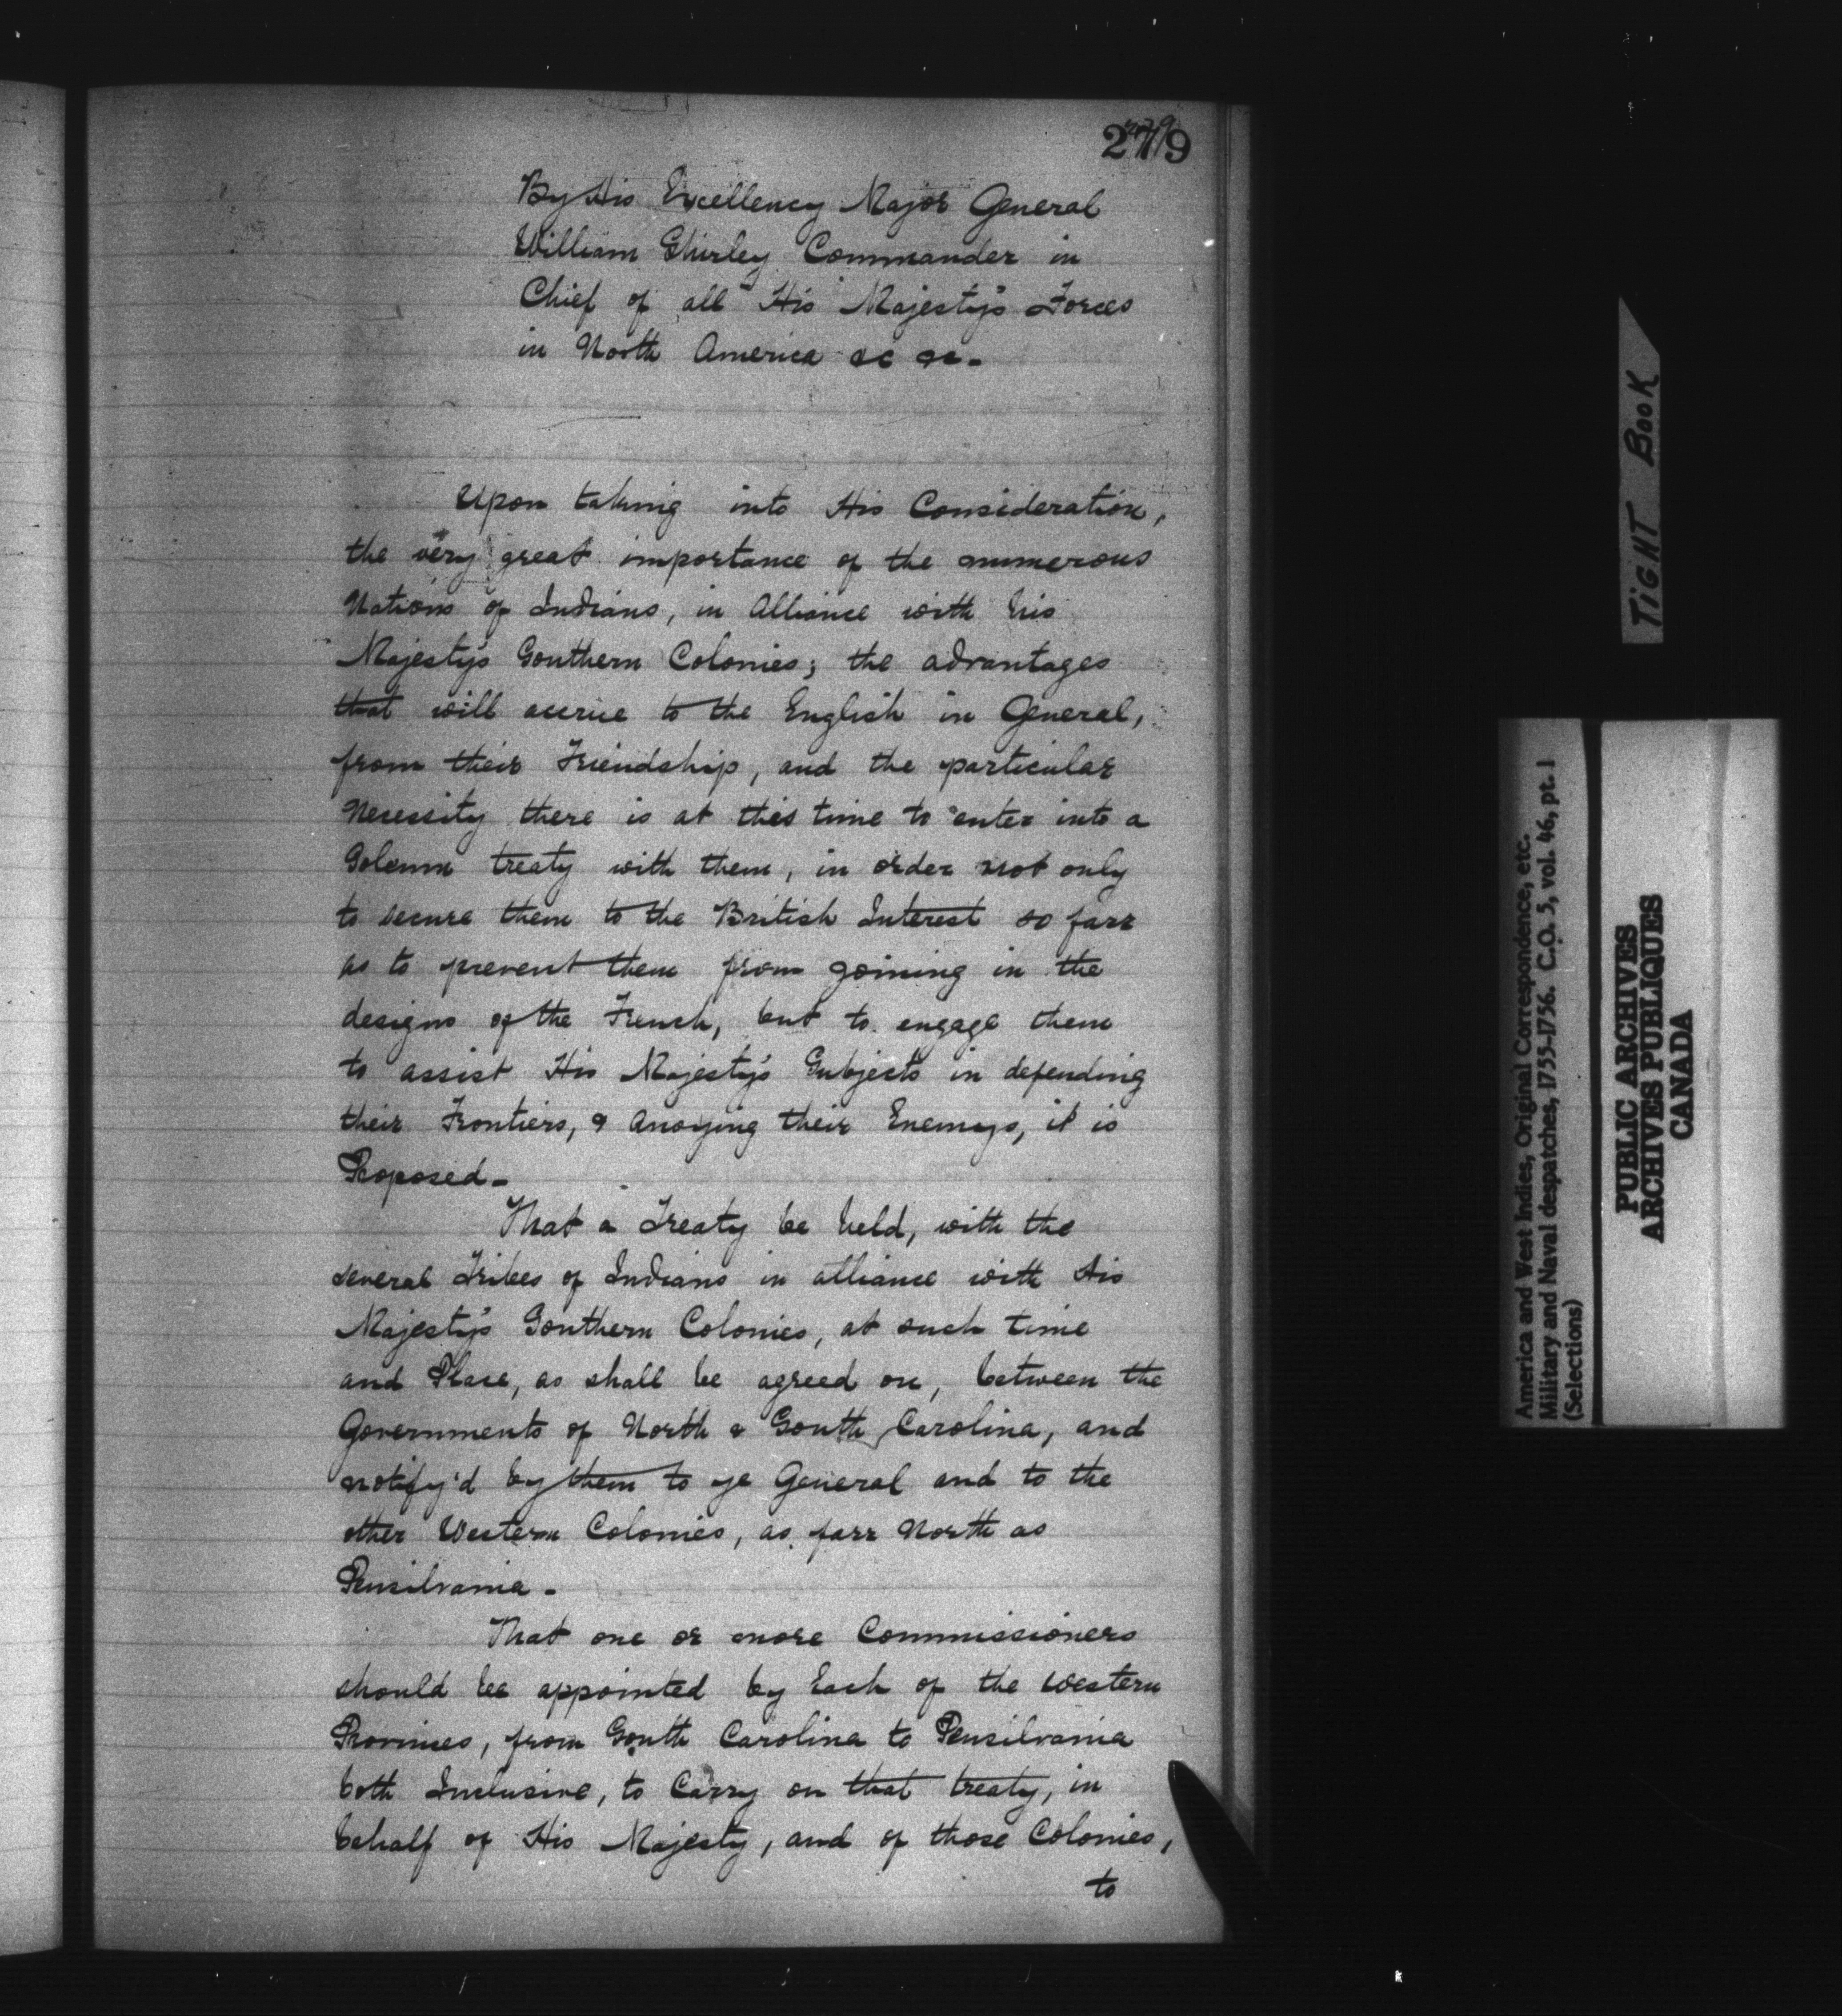 279
By His Excellency Major General
William Shirley Commander in
Chief of all His Majesty's Forces
in North America &c &c -
Upon taking into His Consideration,
the very great importance of the numerous
Nations of Indians, in Alliance with his
Majesty's Southern Colonies; the advantages
that will accrue to the English in General,
from their Friendship, and the particular
Necessity there is at this time to enter into a
Solemn treaty with them, in order not only
to secure them to the British Interest so farr
as to prevent them from joining in the
designs of the French, but to engage them
to assist His Majesty's Subjects in defending
their Frontiers, & anoying their Enemys, it is
Proposed -
That a Treaty be held, with the
several Tribes of Indians in alliance with His
Majesty's Southern Colonies, at such time
and Place, as shall be agreed on, between the
Governments of North & South Carolina, and
notify'd by them to ye General and to the
other Western Colonies, as farr North as
Pensilvania -
That one or more Commissioners
should be appointed by Each of the Western
Provinces, from South Carolina to Pensilvania
both Inclusive, to Carry on that treaty, in
behalf of His Majesty, and of those Colonies,
to
TIGHT BOOK
America and West Indies, Original Correspondence, etc.
Military and Naval despatches, 1755-1756. C.O. 5, vol. 46, pt. 1
(Selections)
PUBLIC ARCHIVES
ARCHIVES PUBLIQUES
CANADA